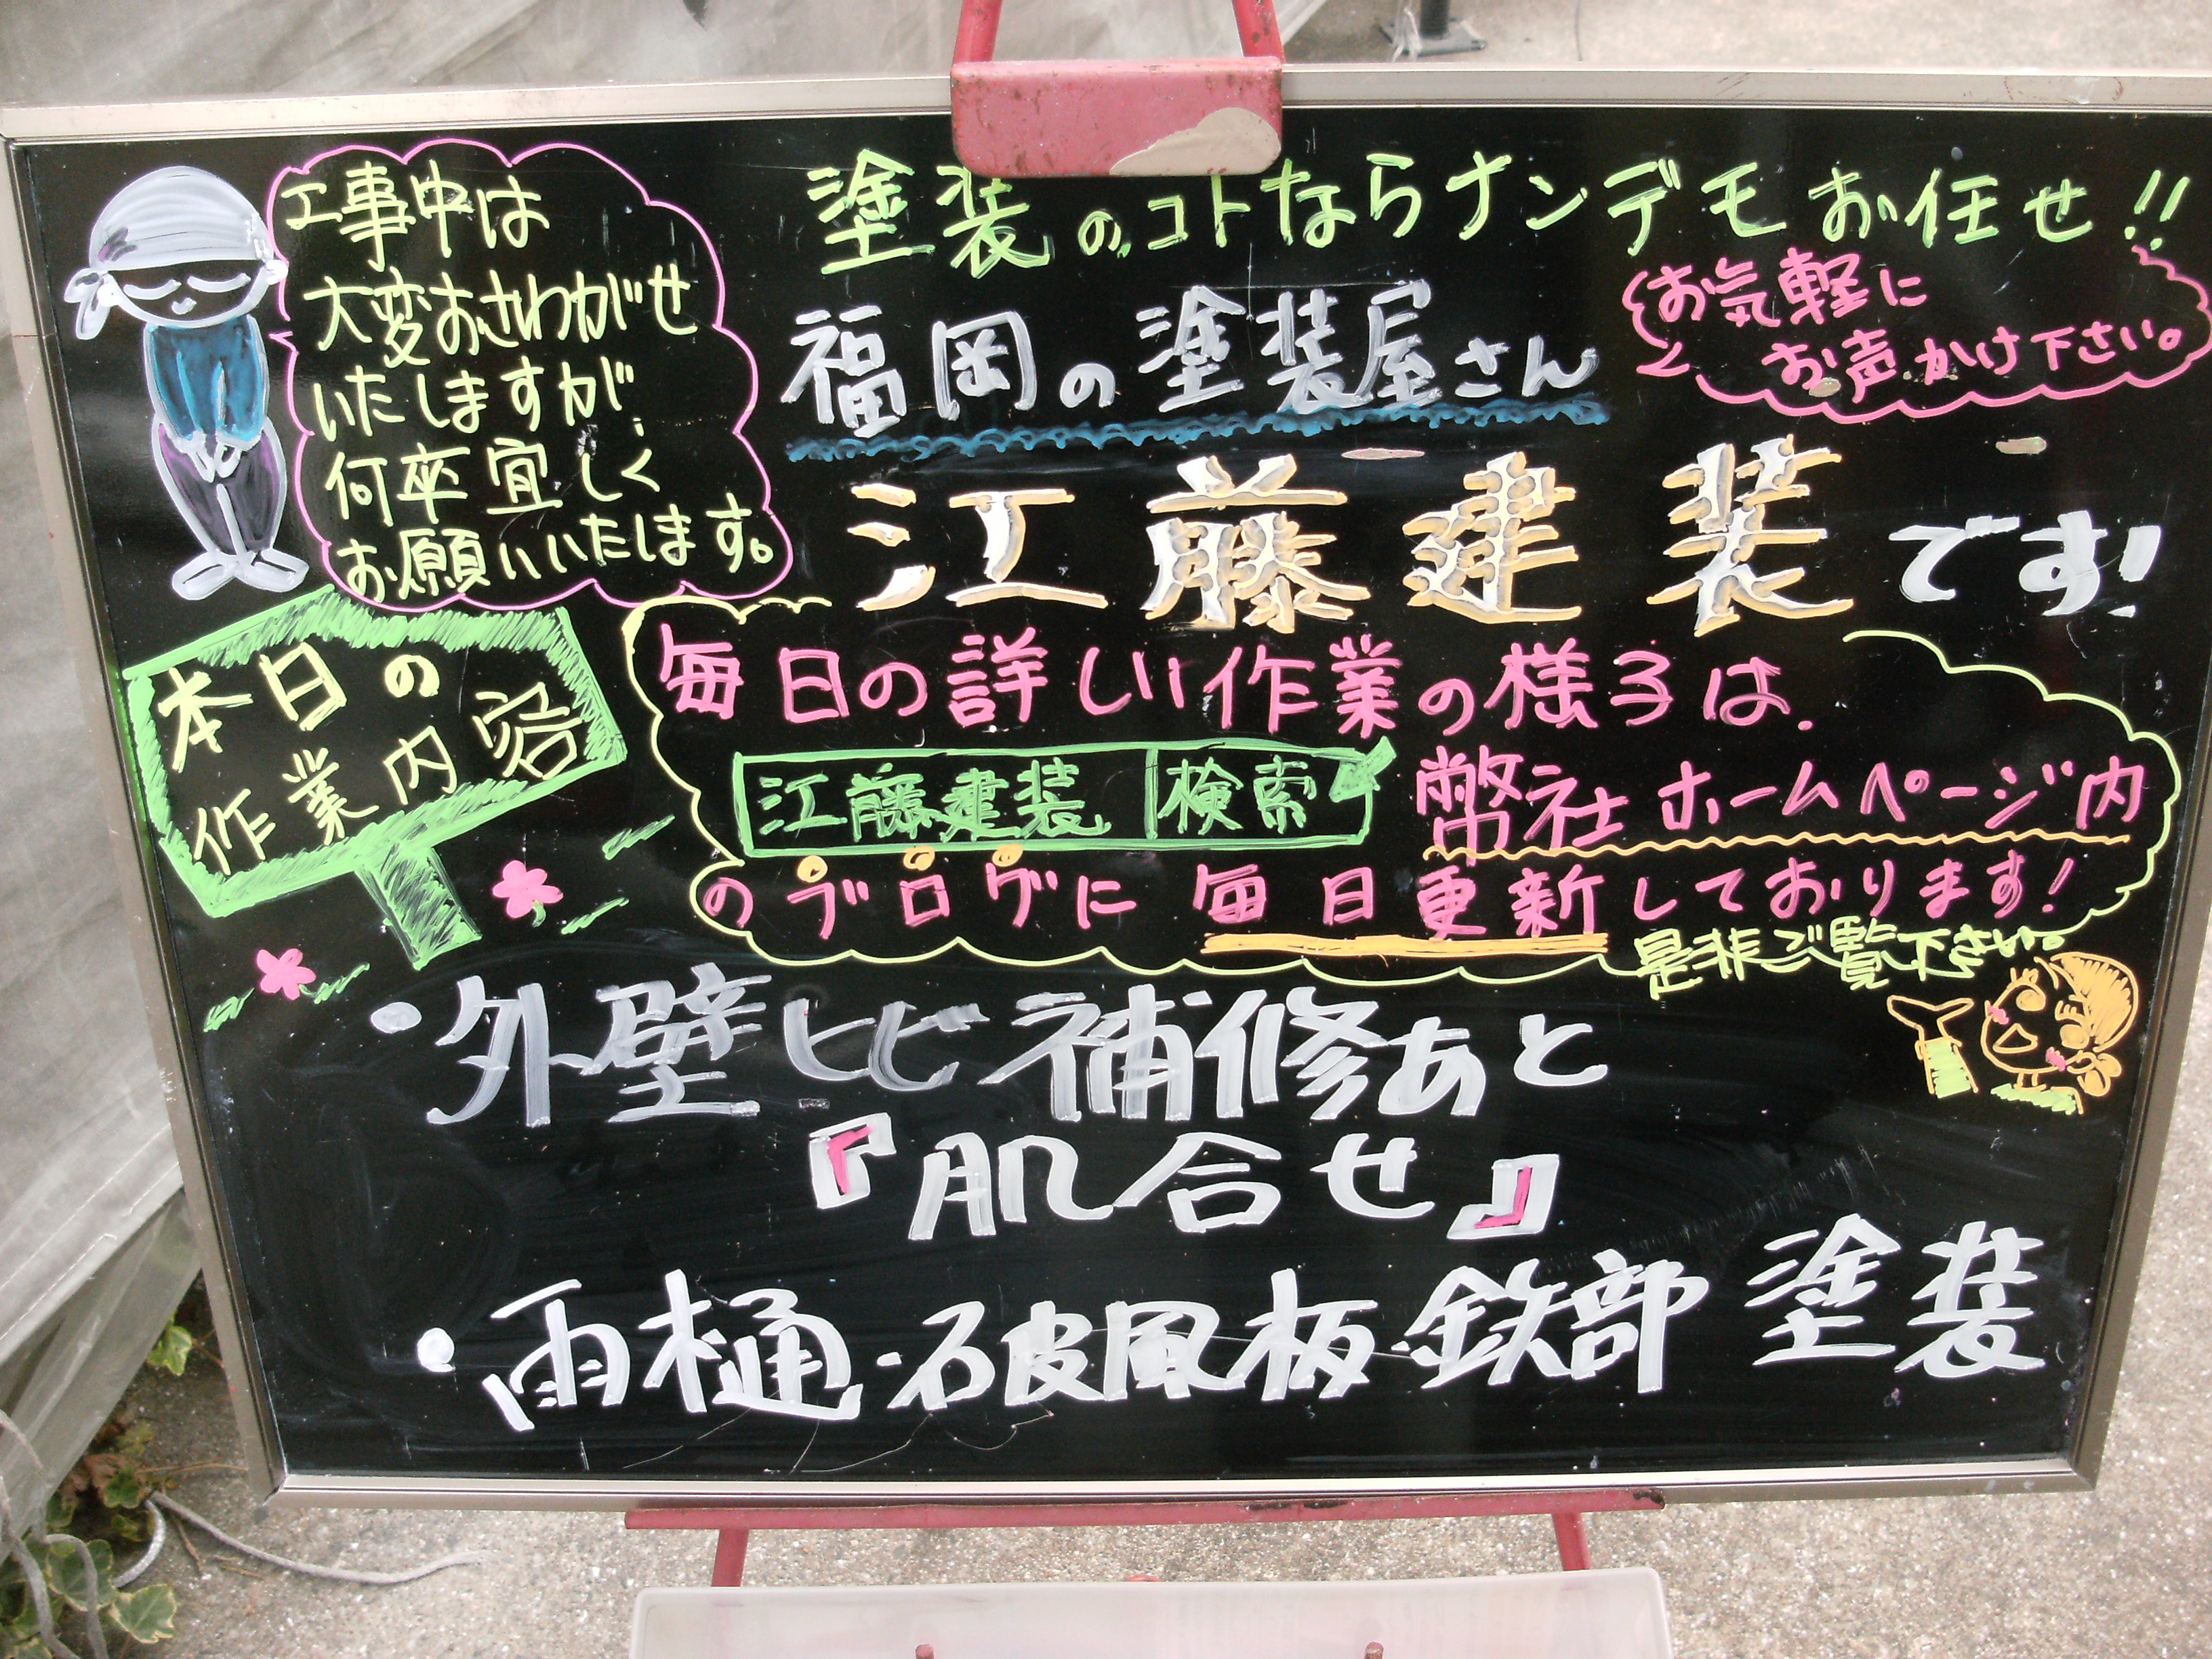 工事中は
大変おさわがせ
いたしますが、
何卒宜しく
お願いいたします。
塗装のコトならナンデモお任せ!!
お気軽に
お声かけ下さい。
福岡の塗装屋さん
江藤建装です!
本日の
作業内容
毎日の詳しい作業の様子は、
江藤建装 検索 弊社ホームページ内
のブログに毎日更新しております!
是非ご覧下さい。
・外壁ヒビ補修あと
『肌合せ』
・雨樋・破風板・鉄部 塗装